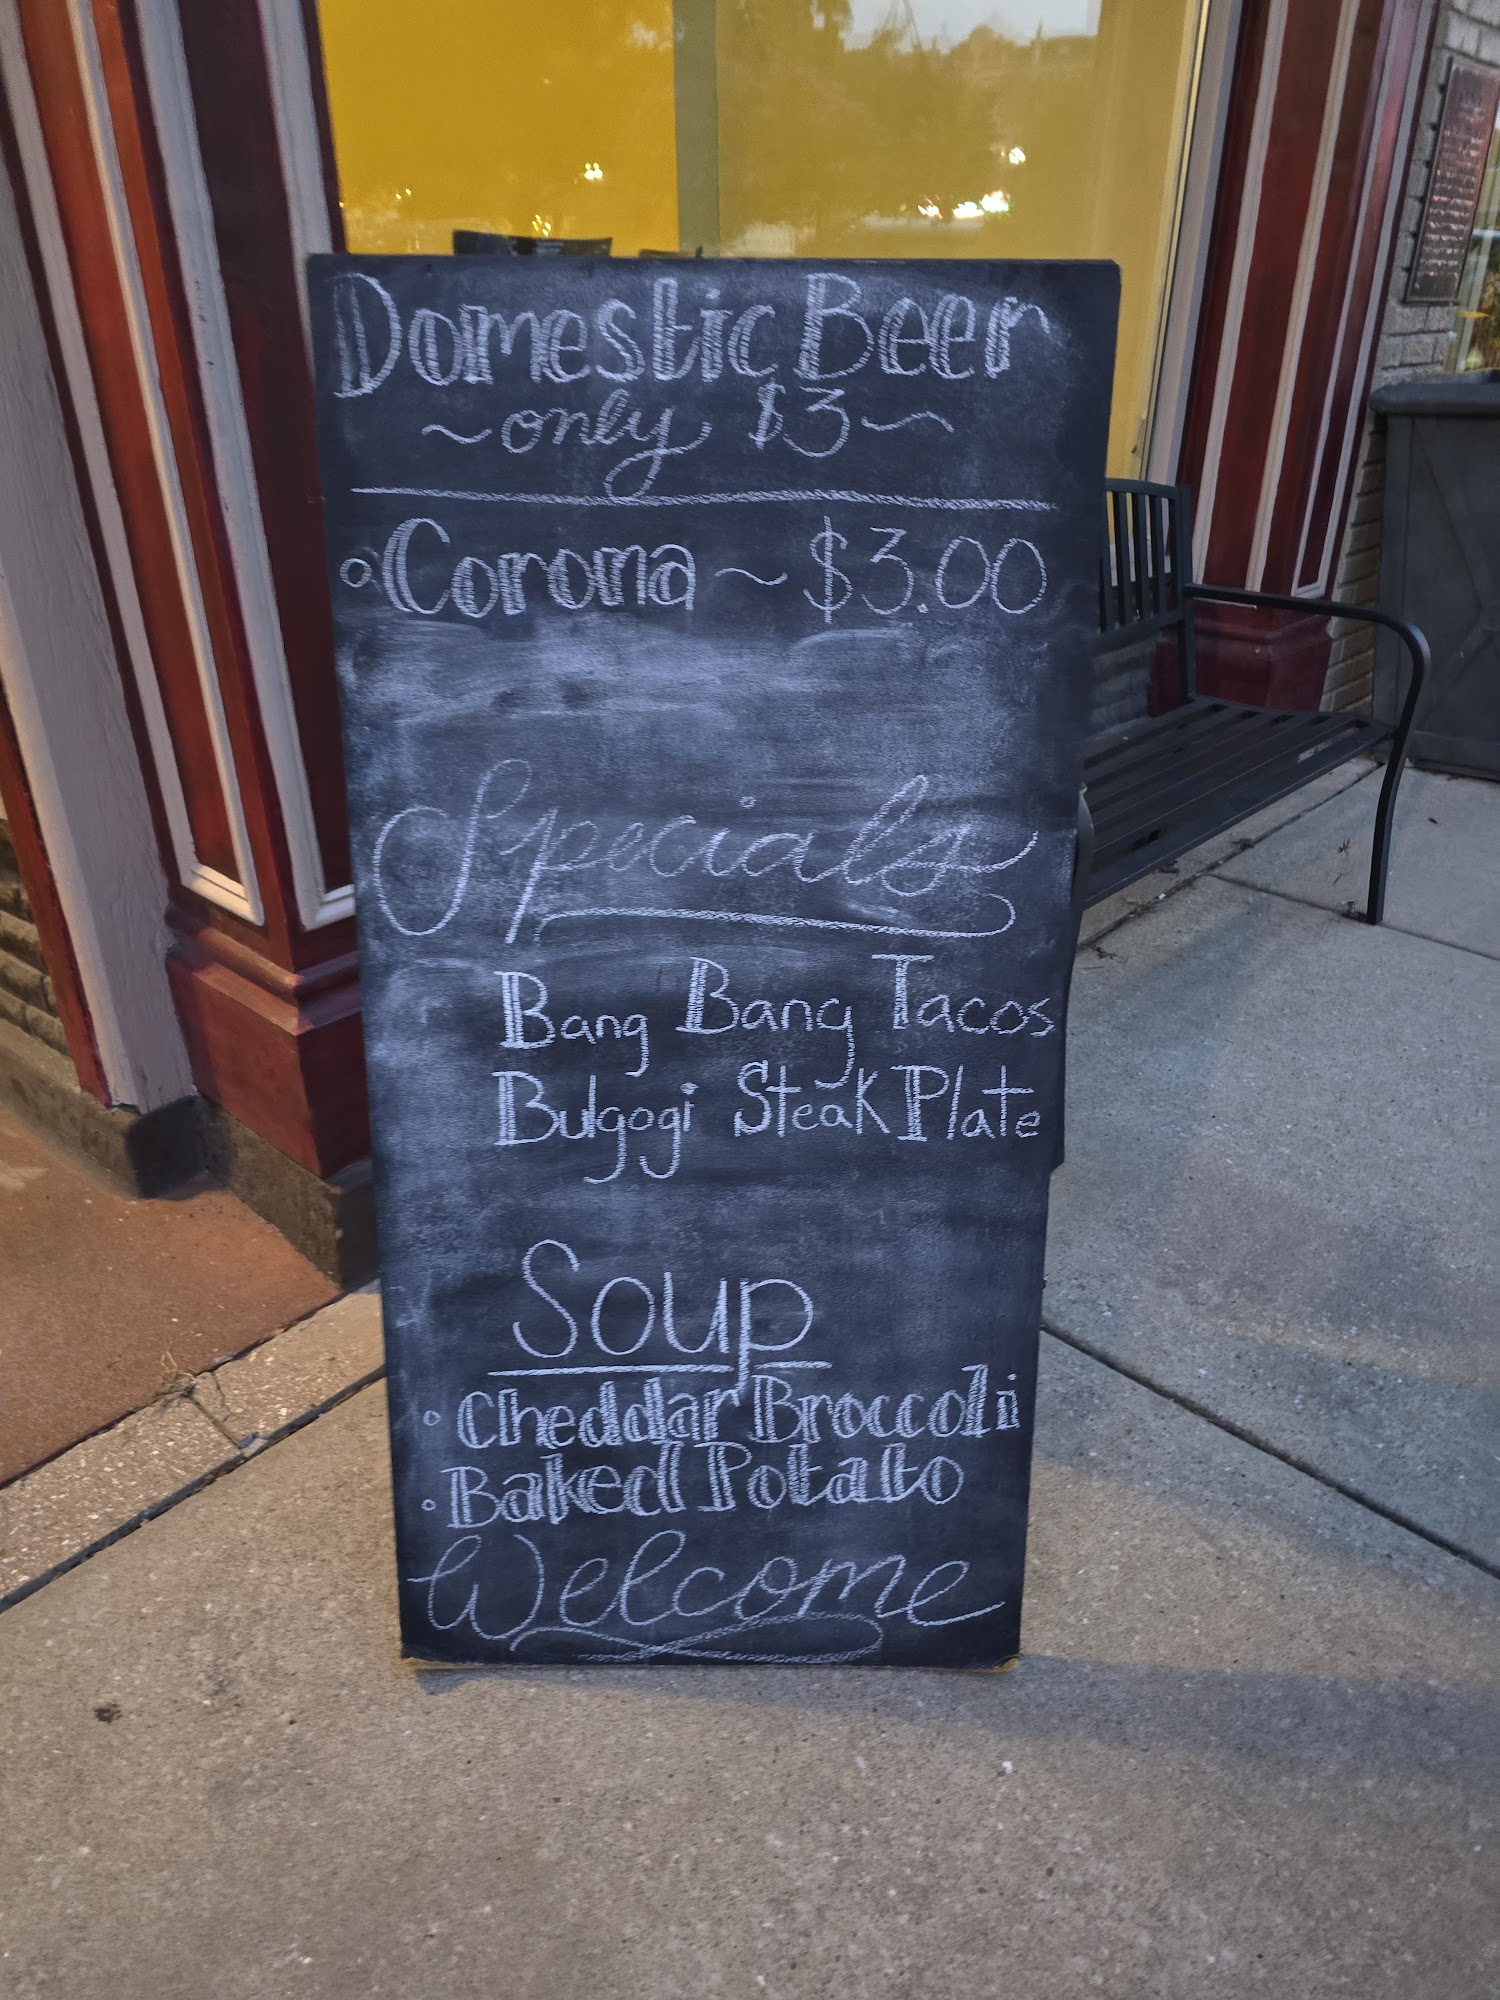 Domestic Beer
~only $3~
Corona ~ $3.00
Specials
Bang Bang Tacos
Bulgogi Steak Plate
Soup
• Cheddar Broccoli
• Baked Potato
Welcome